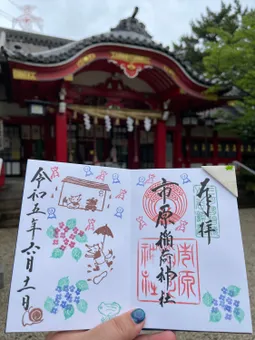 奉拝
市原稲荷神社
市原
稲荷
神社
令和五年六月十一日